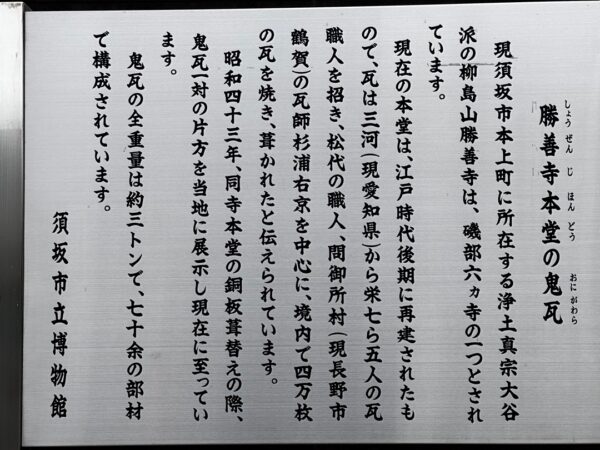 勝善寺本堂の鬼瓦
しょうぜんじほんどう おにがわら
現須坂市本上町に所在する浄土真宗大谷
派の柳島山勝善寺は、磯部六ヵ寺の一つとされ
ています。
現在の本堂は、江戸時代後期に再建されたも
ので、瓦は三河(現愛知県)から栄七ら五人の瓦
職人を招き、松代の職人、問御所村(現長野市
鶴賀)の瓦師杉浦右京を中心に、境内で四万枚
の瓦を焼き、葺かれたと伝えられています。
昭和四十三年、同寺本堂の銅板葺替えの際、
鬼瓦一対の片方を当地に展示し現在に至ってい
ます。
鬼瓦の全重量は約三トンで、七十余の部材
で構成されています。
須坂市立博物館